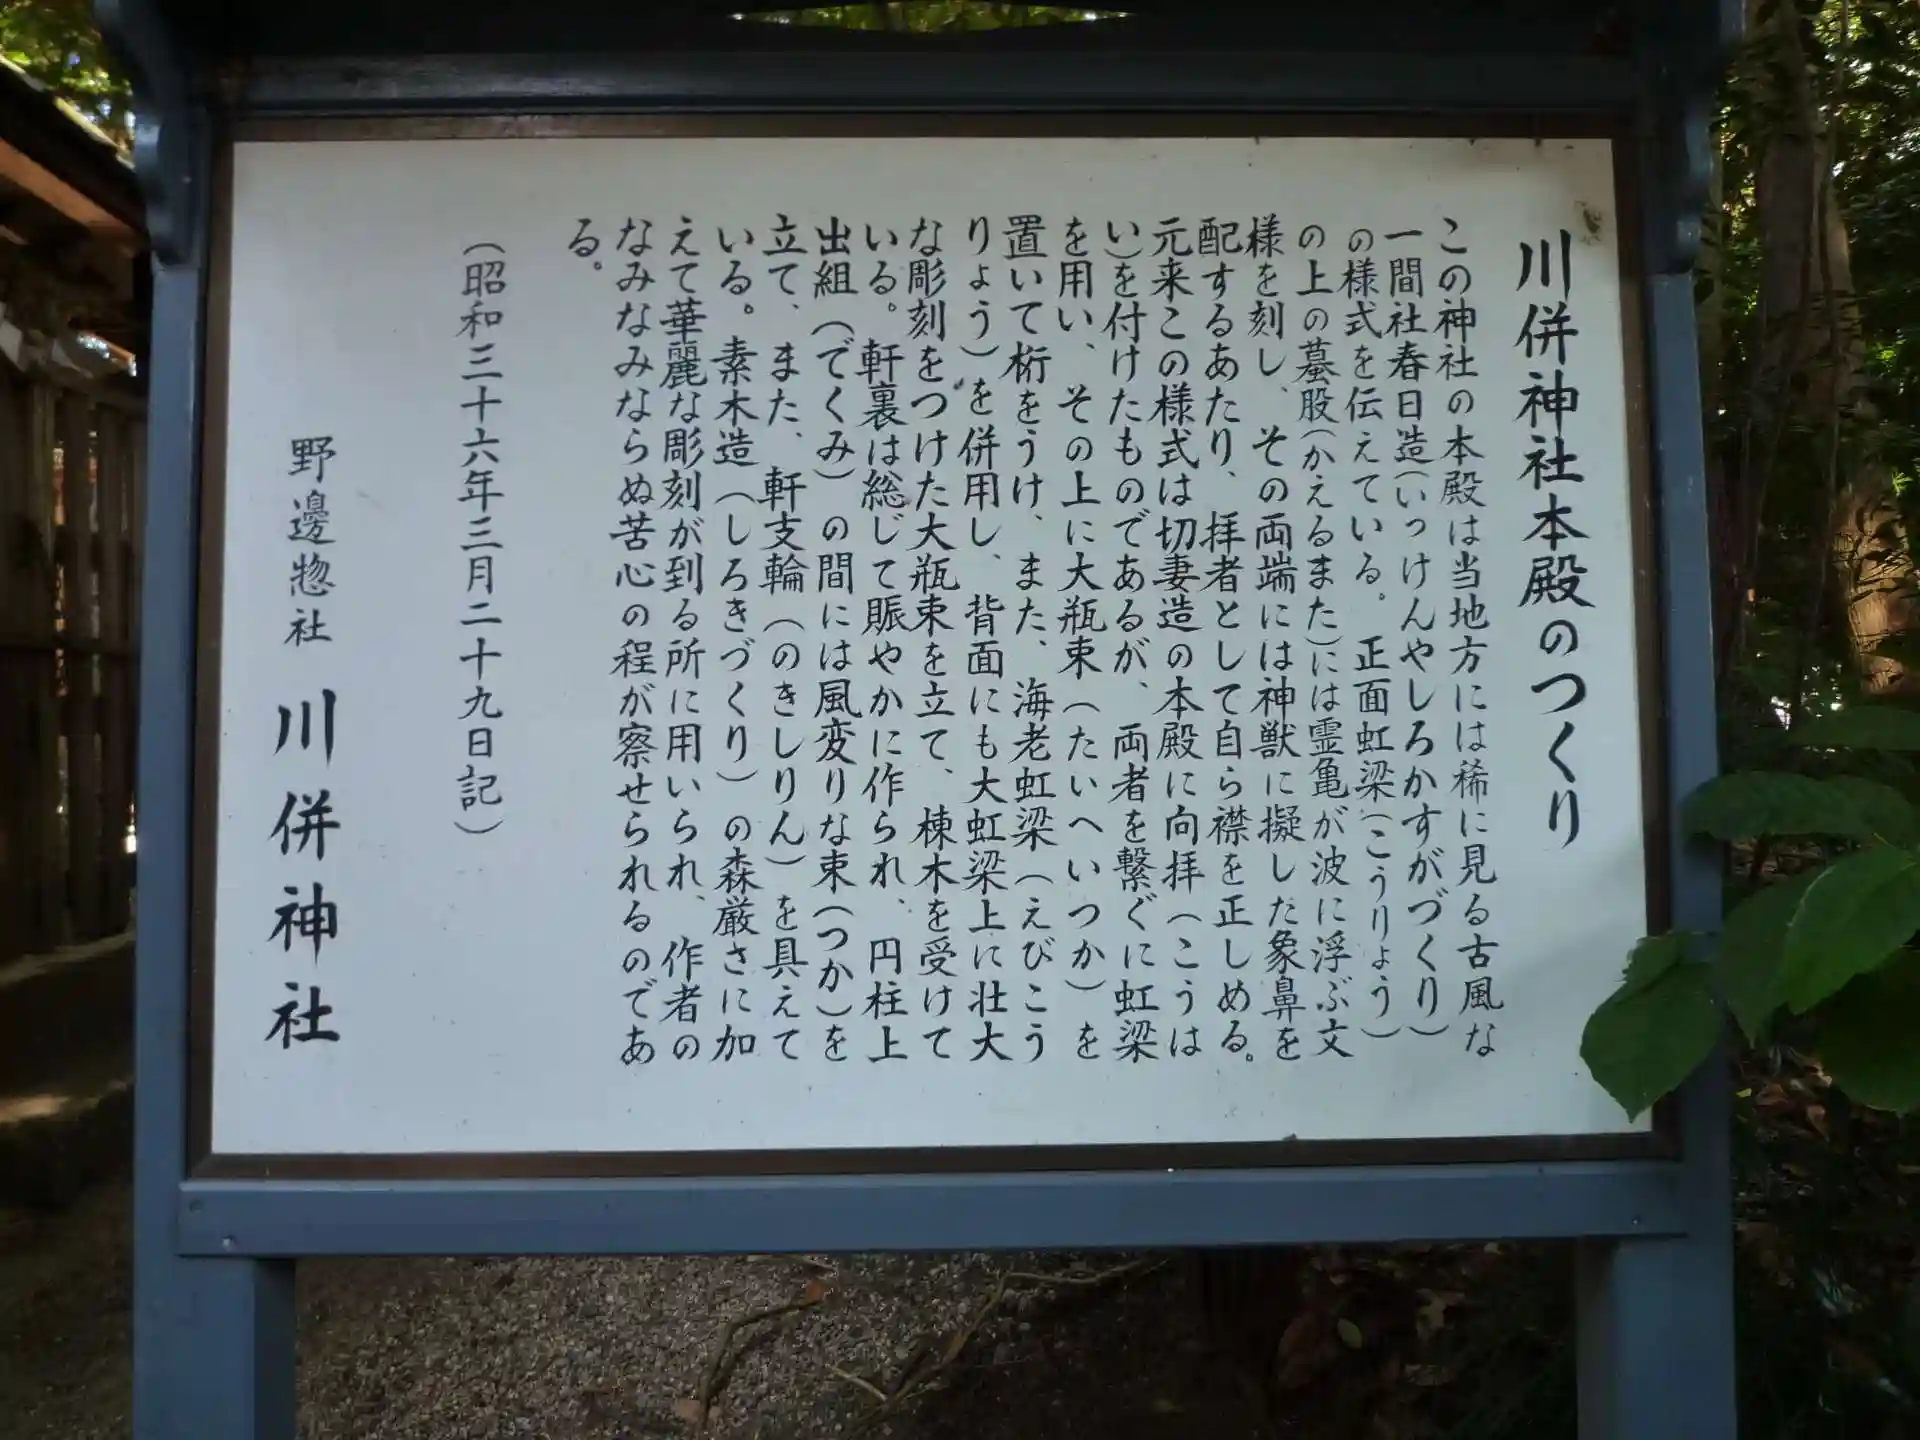 川併神社本殿のつくり
この神社の本殿は当地方には稀に見る古風な
一間社春日造(いっけんやしろかすがづくり)
の様式を伝えている。正面虹梁(こうりょう)
の上の蟇股(かえるまた)には霊亀が波に浮ぶ文
様を刻し、その両端には神獣に擬した象鼻を
配するあたり、拝者として自ら襟を正しめる。
元来この様式は切妻造の本殿に向拝(こうは
い)を付けたものであるが、両者を繋ぐに虹梁
を用い、その上に大瓶束(たいへいつか)を
置いて桁をうけ、また、海老虹梁(えびこう
りょう)を併用し、背面にも大虹梁上に壮大
な彫刻をつけた大瓶束を立て、棟木を受けて
いる。軒裏は総じて賑やかに作られ、円柱上
出組(でくみ)の間には風変りな束(つか)を
立て、また、軒支輪(のきしりん)を具えて
いる。素木造(しろきづくり)の森厳さに加
えて華麗な彫刻が到る所に用いられ、作者の
なみなみならぬ苦心の程が察せられるのであ
る。
(昭和三十六年三月二十九日記)
野邊惣社 川併神社